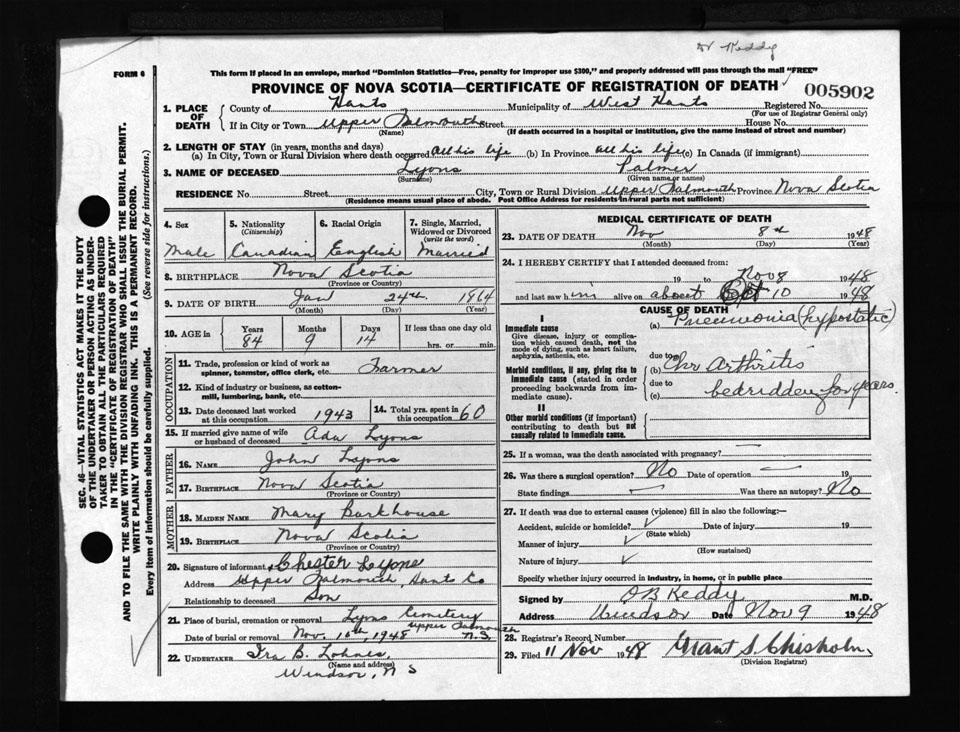 Dr Keddy
FORM 6
This form if placed in an envelope, marked "Dominion Statistics—Free, penalty for improper use $300," and properly addressed will pass through the mail "FREE"
PROVINCE OF NOVA SCOTIA—CERTIFICATE OF REGISTRATION OF DEATH
005902
1. PLACE OF DEATH
County of Hants Municipality of West Hants Registered No.
(For use of Registrar General only)
If in City or Town Upper Falmouth Street House No.
(Name) (If death occurred in a hospital or institution, give the name instead of street and number)
2. LENGTH OF STAY (in years, months and days)
(a) In City, Town or Rural Division where death occurred All his life (b) In Province all his life (c) In Canada (if immigrant)
3. NAME OF DECEASED Lyons Palmer
(Surname) (Given name or names)
RESIDENCE No. Street City, Town or Rural Division Upper Falmouth Province Nova Scotia
(Residence means usual place of abode. Post Office Address for residents in rural parts not sufficient)
4. Sex
Male
5. Nationality
(Citizenship)
Canadian
6. Racial Origin
English
7. Single, Married,
Widowed or Divorced
(write the word)
Married
8. BIRTHPLACE Nova Scotia
(Province or Country)
9. DATE OF BIRTH Jan 24th 1864
(Month) (Day) (Year)
10. AGE in Years Months Days If less than one day old
84 9 14 hrs. or min.
OCCUPATION
11. Trade, profession or kind of work as
spinner, teamster, office clerk, etc. Farmer
12. Kind of industry or business, as cotton-
mill, lumbering, bank, etc.
13. Date deceased last worked
at this occupation 1943
14. Total yrs. spent in
this occupation 60
15. If married give name of wife
or husband of deceased Ada Lyons
FATHER
16. NAME John Lyons
17. BIRTHPLACE Nova Scotia
(Province or Country)
MOTHER
18. MAIDEN NAME Mary Barkhouse
19. BIRTHPLACE Nova Scotia
(Province or Country)
20. Signature of informant Chester Lyons
Address Upper Falmouth, Hants Co
Relationship to deceased Son
21. Place of burial, cremation or removal Lyons Cemetery
Upper Falmouth
Date of burial or removal Nov. 10th, 1948 N.S.
22. UNDERTAKER Ira B. Lohnes,
(Name and address)
Windsor, N S
MEDICAL CERTIFICATE OF DEATH
23. DATE OF DEATH Nov 8th 1948
(Month) (Day) (Year)
24. I HEREBY CERTIFY that I attended deceased from:
19 to Nov 8 1948
and last saw him alive on about Oct 10 1948
CAUSE OF DEATH
I
Immediate cause
Give disease, injury or complication
which caused death, not the
mode of dying, such as heart failure,
asphyxia, asthenia, etc.
(a) Pneumonia (hypostatic)
due to
Morbid conditions, if any, giving rise to
immediate cause (stated in order
proceeding backwards from immediate
cause).
(b) Chr Arthritis
due to
(c) bedridden for years
II
Other morbid conditions (if important)
contributing to death but not
causally related to immediate cause.
25. If a woman, was the death associated with pregnancy?
26. Was there a surgical operation? No Date of operation 19
State findings Was there an autopsy? No
27. If death was due to external causes (violence) fill in also the following:—
Accident, suicide or homicide? Date of injury 19
(State which)
Manner of injury
(How sustained)
Nature of injury
Specify whether injury occurred in industry, in home, or in public place
Signed by O B Keddy M.D.
Address Windsor Date Nov 9 1948
28. Registrar's Record Number
29. Filed 11 Nov 1948 Grant S. Chisholm.
(Division Registrar)
SEC. 46—VITAL STATISTICS ACT MAKES IT THE DUTY
OF THE UNDERTAKER OR PERSON ACTING AS UNDER-
TAKER TO OBTAIN ALL THE PARTICULARS REQUIRED
IN THE "CERTIFICATE OF REGISTRATION OF DEATH"
AND TO FILE THE SAME WITH THE DIVISION REGISTRAR WHO SHALL ISSUE THE BURIAL PERMIT.
WRITE PLAINLY WITH UNFADING INK. THIS IS A PERMANENT RECORD.
Every item of information should be carefully supplied. (See reverse side for instructions.)